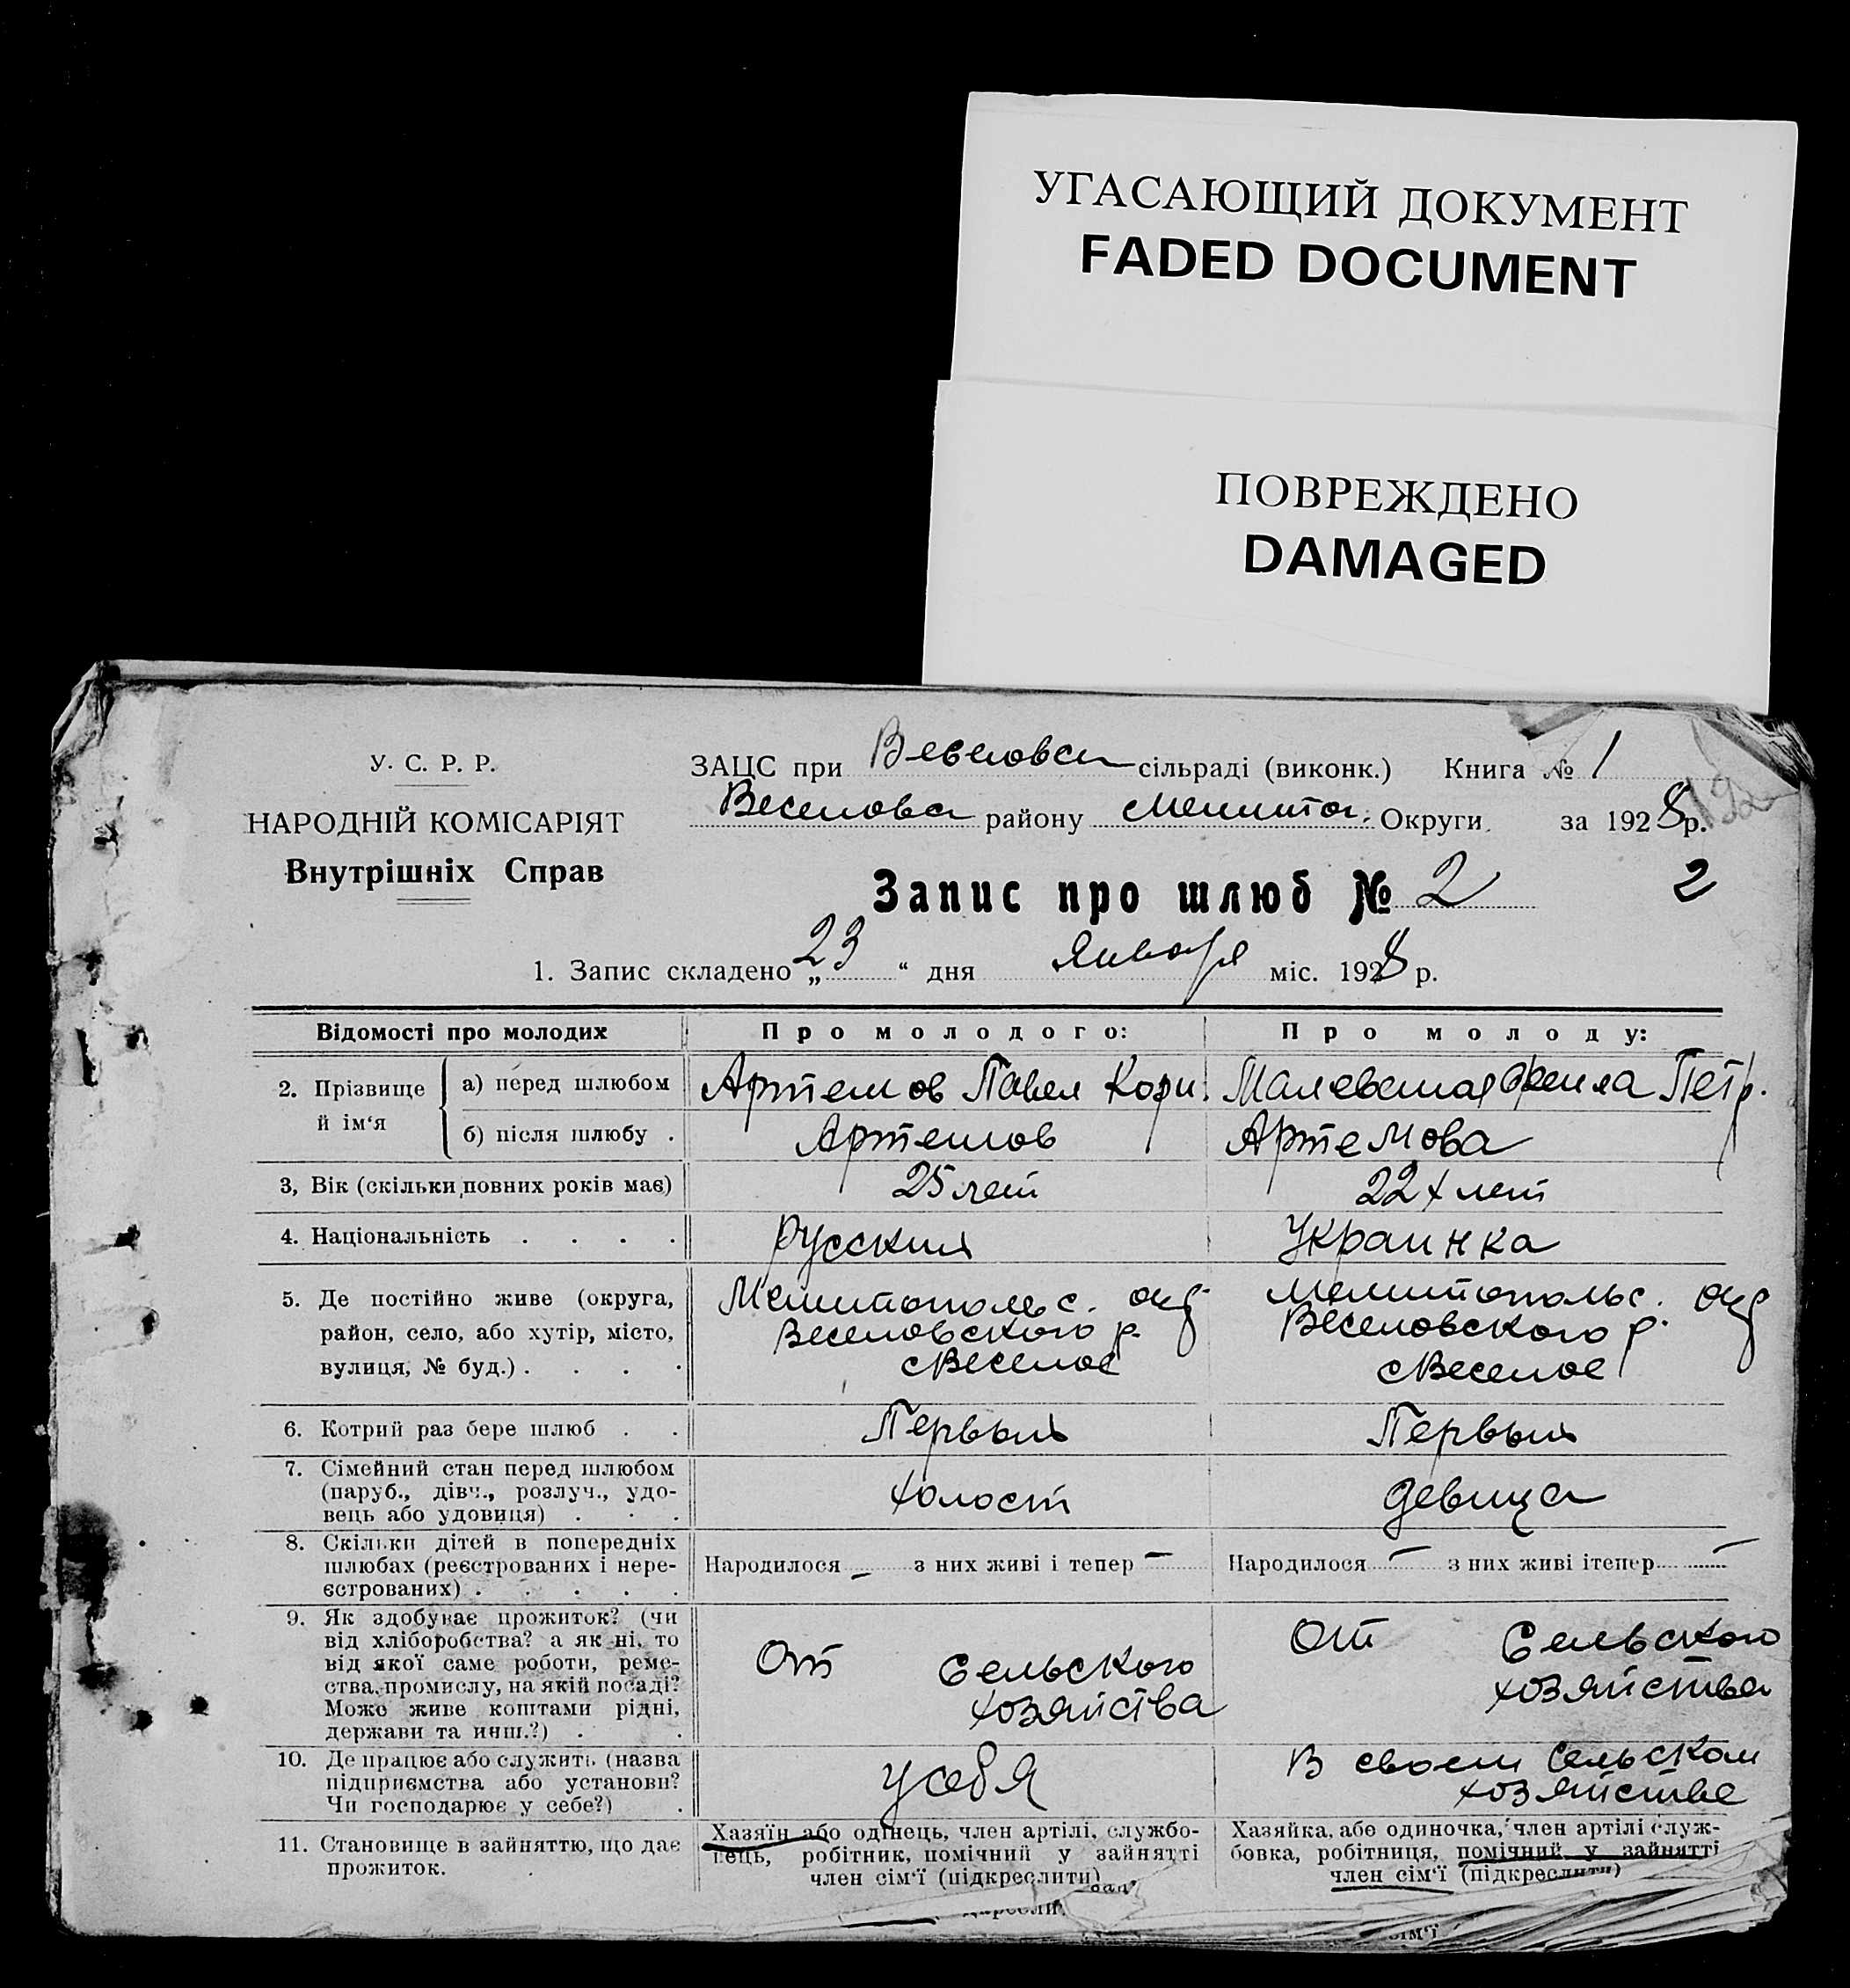 УГАСАЮЩИЙ ДОКУМЕНТ
FADED DOCUMENT
ПОВРЕЖДЕНО
DAMAGED
У. С. Р. Р.
НАРОДНІЙ КОМІСАРІЯТ
Внутрішніх Справ
ЗАЦС при Веселовск сільраді (виконк.) Книга № 1
Веселовск району Мелитоп. Округи за 1928 р.
Запис про шлюб № 2
2
1. Запис складено „ 23 “ дня Января міс. 1928 р.
Відомості про молодих Про молодого: Про молоду:
2. Прізвище й ім‘я
а) перед шлюбом Артемов Павел Корн. Малевашая Фекла Петр.
б) після шлюбу . Артемов Артемова
3, Вік (скільки повних років має) 25 лет 22х лет
4. Національність . . . . Русский Украинка
5. Де постійно живе (округа,
район, село, або хутір, місто,
вулиця, № буд.) . . . .
Мелитопольс. окр
Веселовского р.
с Веселое
Мелитопольс. окр
Веселовского р.
с Веселое
6. Котрий раз бере шлюб . . Первый Первый
7. Сімейний стан перед шлюбом
(паруб., дівч., розлуч., удо-
вець або удовиця) . . .
холост девица
8. Скільки дітей в попередніх
шлюбах (реєстрованих і нере-
єстрованих) . . . . .
Народилося — з них живі і тепер — Народилося — з них живі ітепер —
9. Як здобуває прожиток? (чи
від хліборобства? а як ні, то
від якої саме роботи, реме-
ства, промислу, на якій посаді?
Може живе коштами рідні,
держави та инш.?) . .
От Сельского
хозяйства
От Сельского
хозяйства
10. Де працює або служить (назва
підприємства або установи?
Чи господарює у себе?) .
у себя
В своем Сельском
хозяйстве
11. Становище в зайняттю, що дає
прожиток.
Хазяїн або одінець, член артілі, службо-
вець, робітник, помічний у зайнятті
член сім‘ї (підкреслити)
Хазяйка, або одиночка, член артілі служ-
бовка, робітниця, помічний у зайнятті
член сім‘ї (підкреслити)
сім‘ї